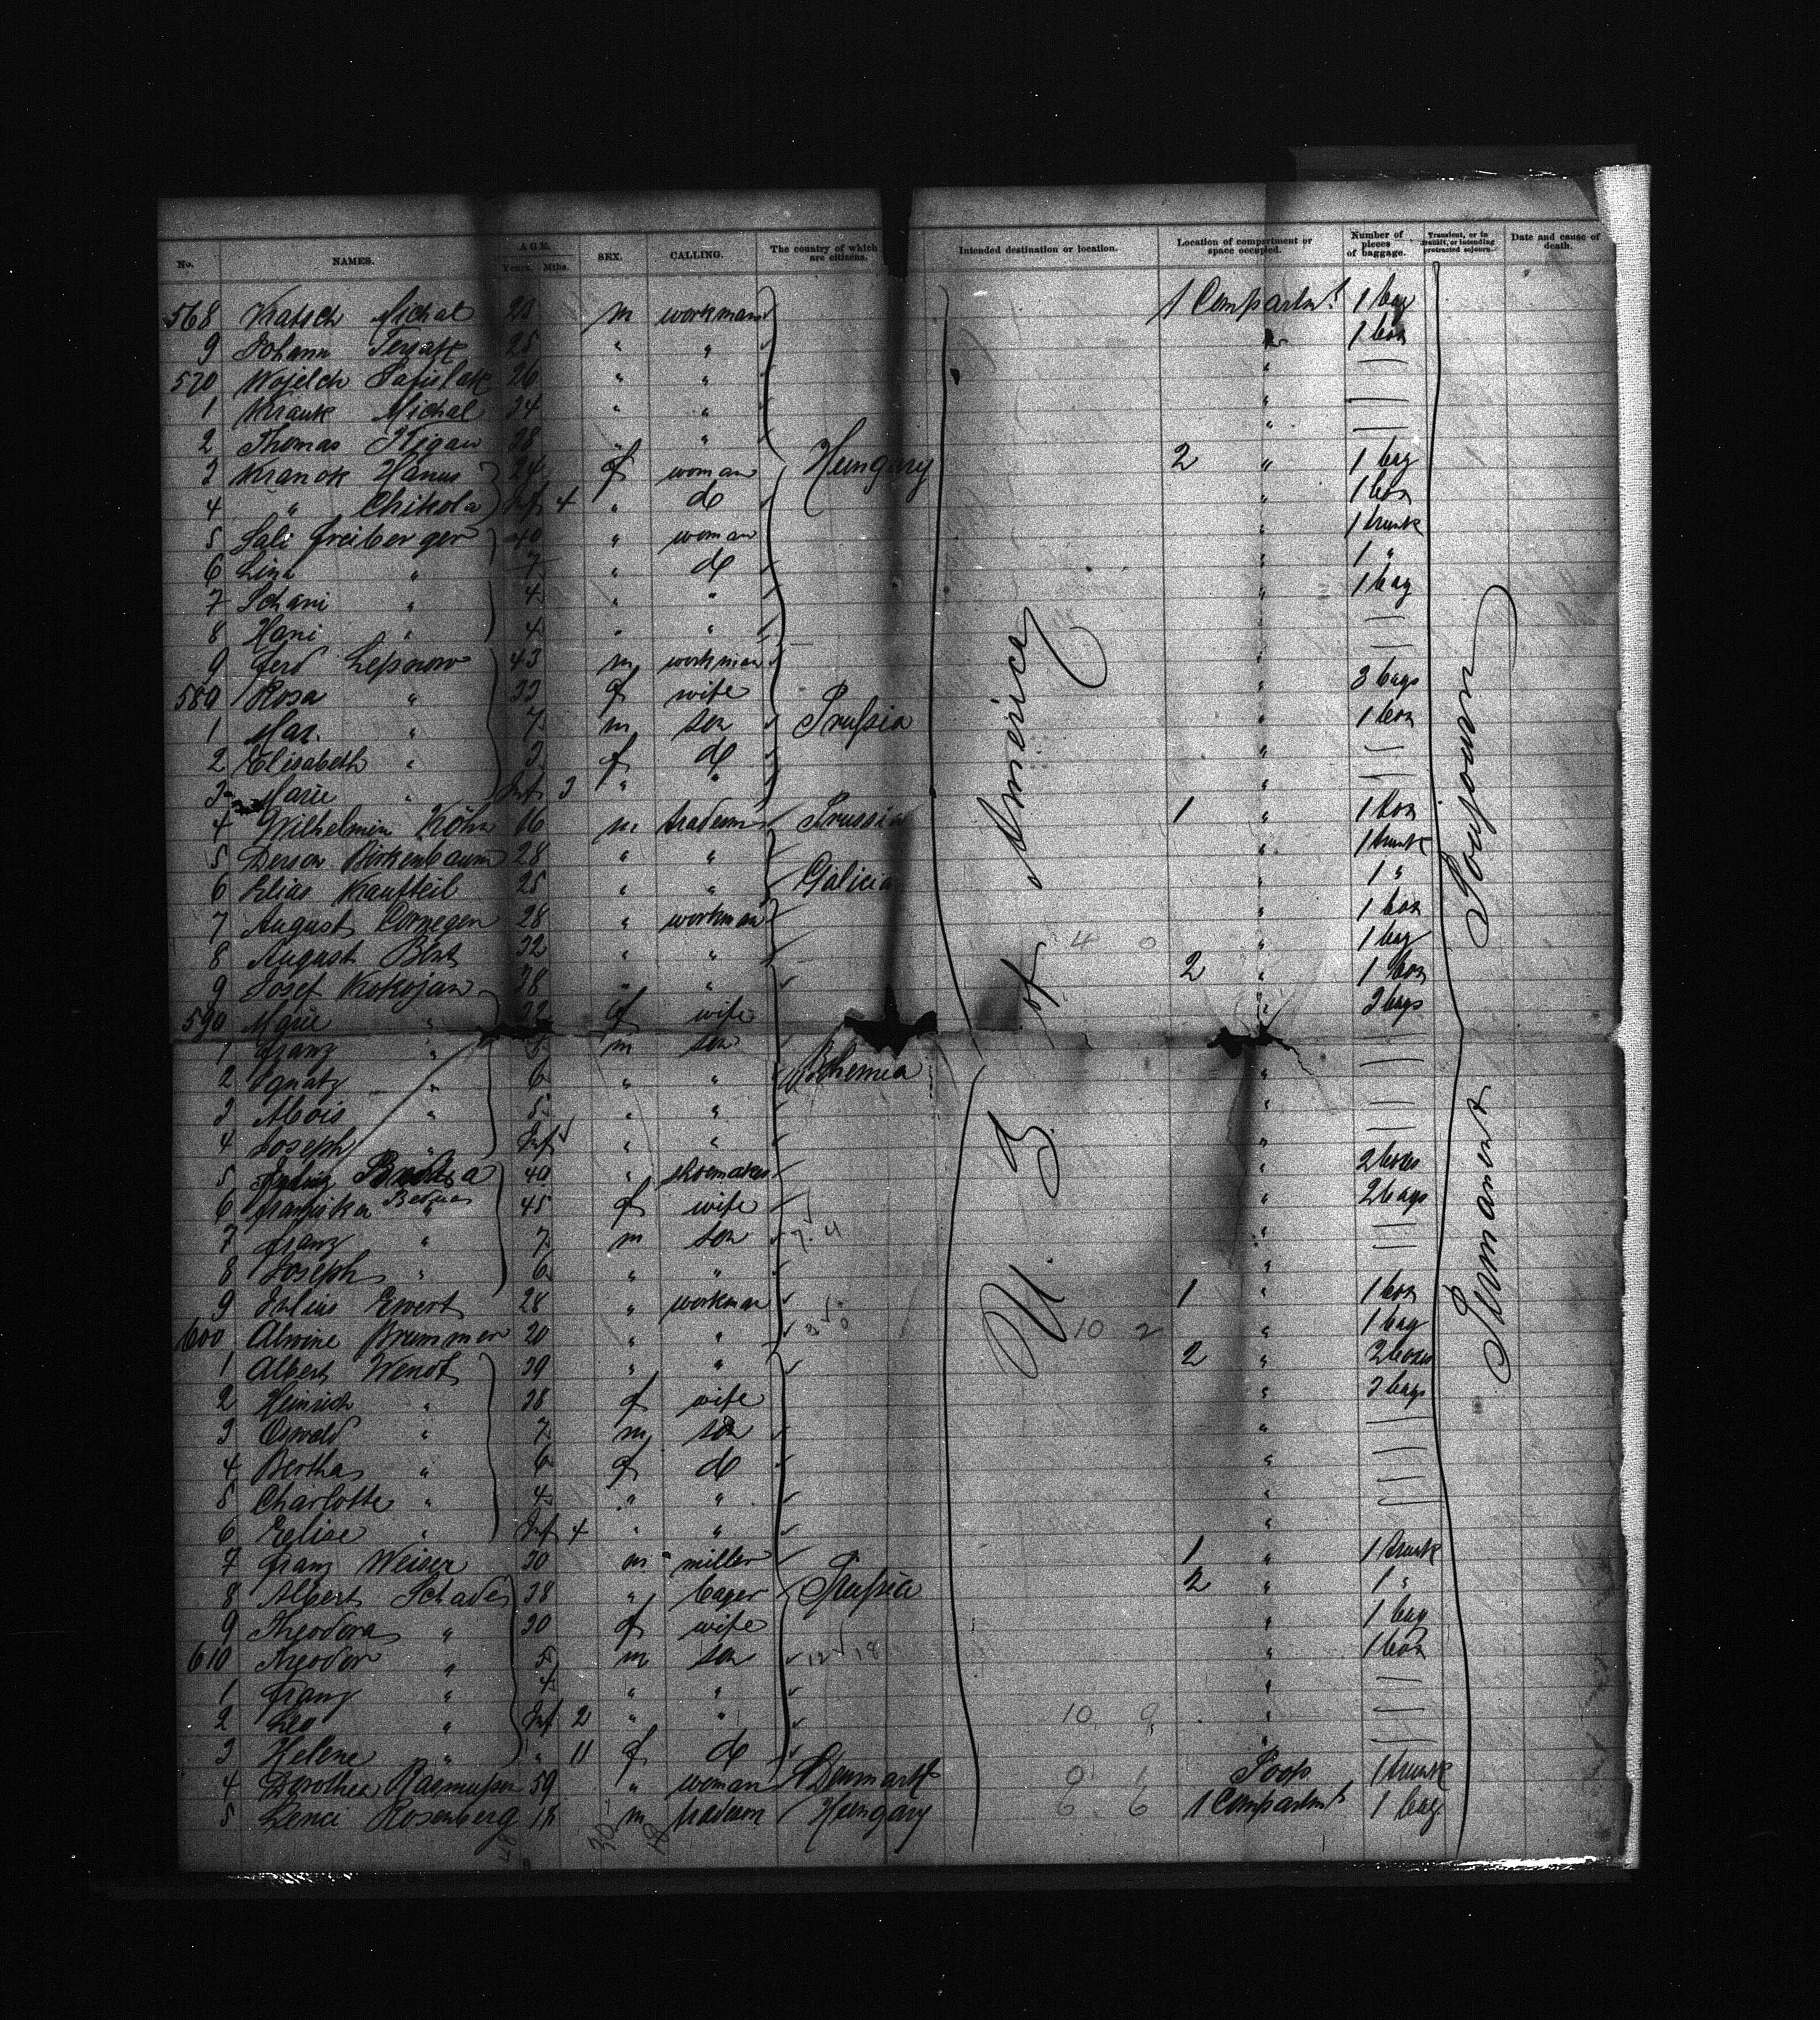 No. NAMES. AGE. Years. Mths. SEX. CALLING. The country of which are citizens. Intended destination or location. Location of compartment or space occupied. Number of pieces of baggage. Transient, or in transit, or intending protracted sojourn. Date and cause of death.
568 Michal m workman 1 Compartmt 1 bag
9 Johann 25 " " 1 box
570 26 " " "
1 Michal 24 " " "
2 Thomas " " "
3 Hanus 24 f woman Hungary 2 " 1 bag
4 " Chikola Inf 4 " do " 1 box
5 Sali Freiberger 40 " woman " 1 trunk
6 Lina " 7 " do " 1 "
7 Schani " 4 " " " 1 bag
8 Hani " 4 " "
9 Ferd 43 m workman "
580 Rosa " 33 f wife " 3 bags
1 Max " 7 m son Prussia " 1 box
2 Elisabeth " 3 f do "
3 Marie " Inf 3 " " "
4 Wilhelmin Köhn 16 m tradesm Prussia 1 " 1 box
5 Birkenbaum 28 " " " 1 trunk
6 Elias Kaufteil 25 " " Galicia " 1 "
7 August 28 " workman " 1 box
8 August 32 " " " 4 0 1 bag
9 Josef Kokojan 38 " " 2 " 1 box
590 Marie " f wife " 3 bags
1 Franz " m son
2 Ignatz " 6 " " Bohemia "
3 Alois " 5 " " "
4 Joseph " Inf " " "
5 40 " shoemaker " 2 boxes
6 Franziska 45 f wife " 2 bags
7 Franz " 7 m son "
8 Joseph " 6 " " "
9 Julius Ewert 28 " workman 1 " 1 box
600 Alwine Brummer 20 " " 10 2 " 1 bag
1 Albert Wendt 39 " " 2 " 2 boxes
2 Heinrich " 38 f wife " 3 bags
3 Oswald " 7 m son "
4 Bertha " 6 f do "
5 Charlotte " 4 " " "
6 " Inf 4 " " "
7 Franz Weiser 30 m miller 1 " 1 trunk
8 Albert Schade 38 " Prussia 2 " 1 "
9 Theodora " 30 f wife " 1 bag
610 Theodor " 5 m son 12 18 " 1 box
1 Franz " 4 " " "
2 Leo " Inf 2 " " 10 9 "
3 Helene " " 11 f do "
4 Dorothea Rasmussen 59 " woman Denmark 0 1 Poop 1 trunk
5 Rosenberg 18 m tradesm Hungary 6 6 1 Compartmt 1 bag
U. S. of America
Permanent Sojourn